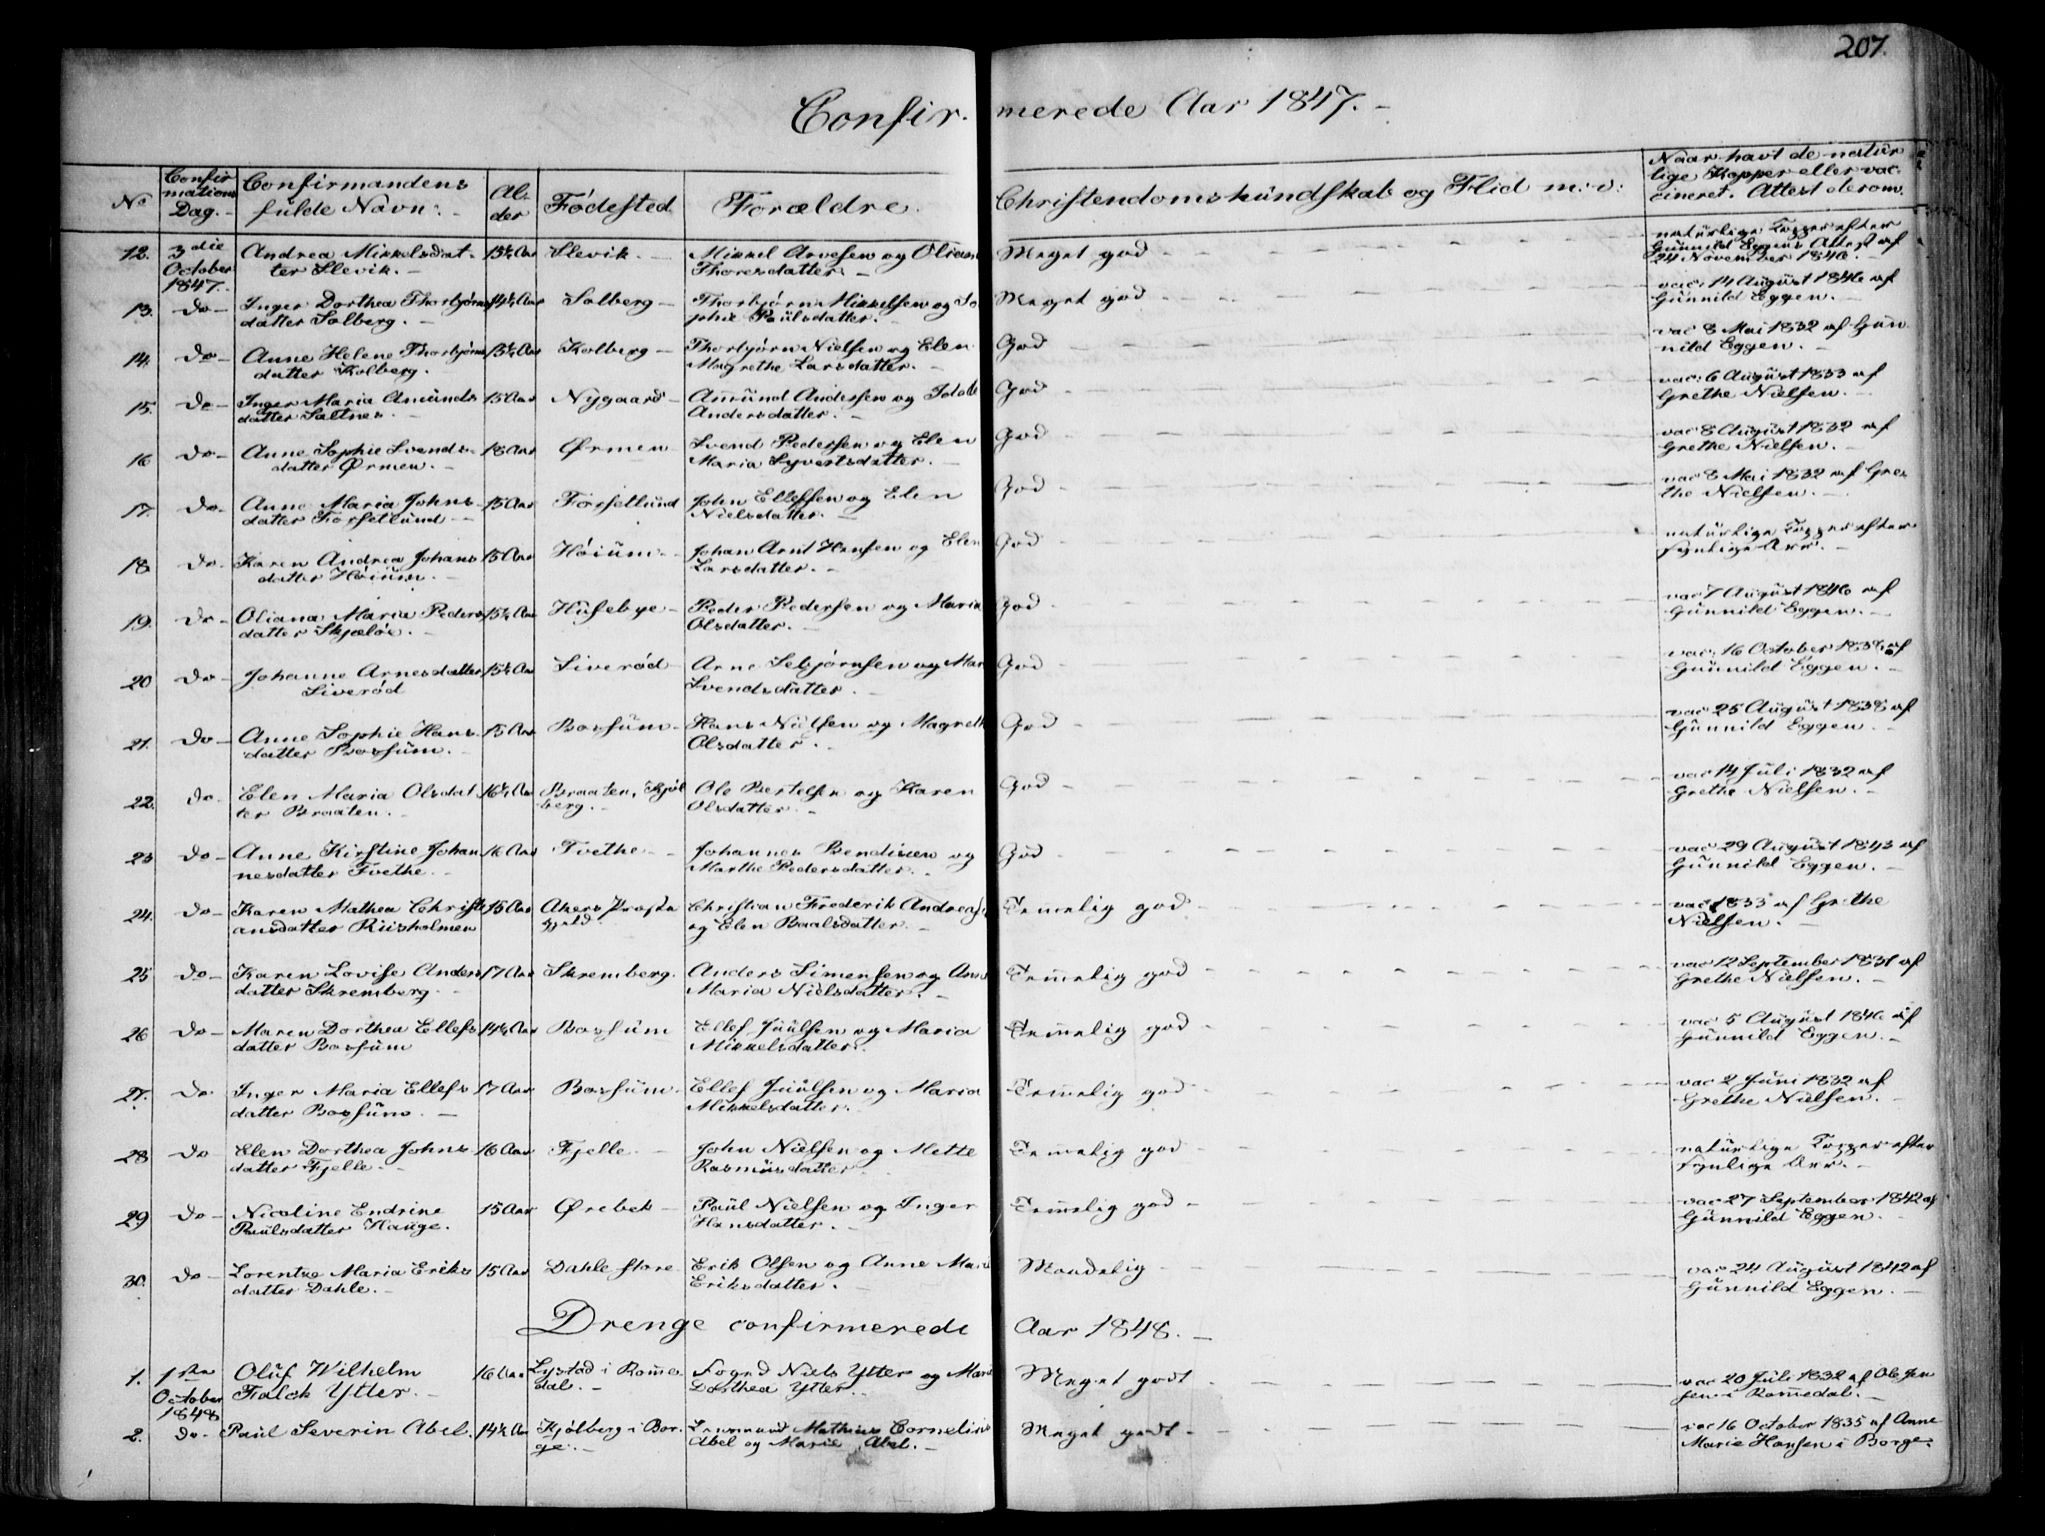 207.
Confirmerede Aar 1847. -
No
Confirmations Dag. -
Confirmandens fulde Navn: -
Alder
Fødested
Forældre.
Christendomskundskab og Flid m: v:
Naar havt de naturlige Kopper eller vaccineret. Attest derom.
12. 3die October 1847. Andrea Mikkelsdatter Slevik. - 15½ Aar Slevik. - Mikkel Arvesen og Oliana Thoresdatter. - Meget god - naturlige Kopper efter Gunnild Eggens Attest af 24 November 1846. -
13. do - Inger Dorthea Thorbjørnsdatter Solberg. - 14½ Aar Solberg - Thorbjørn Mikkelsen og Sophie Paulsdatter. - Meget god - vac: 14 August 1846 af Gunnild Eggen. -
14. do - Anne Helene Thorbjørnsdatter Kolberg. 15½ Aar Kolberg - Thorbjørn Nielsen og Elen Magrethe Larsdatter. - God - vac 8 Mai 1832 af Gunnild Eggen. -
15. do - Inger Maria Amundsdatter Saltnes. - 15 Aar Nygaard - Amund Andersen og Andersdatter. - God - vac: 6 August 1833 af Grethe Nielsen. -
16 do - Anne Sophie Svendsdatter Ørmen. - 18 Aar Ørmen Svend Pedersen og Elen Maria Syvertsdatter. - God - vac 8 August 1832 af Grethe Nielsen. -
17. do - Anne Maria Johnsdatter Forsetlund - 15 Aar Forsetlund John Ellefsen og Elen Nielsdatter. - God - vac 8 Mai 1832 af Grethe Nielsen. -
18. do - Karen Andrea Johansdatter Høium. - 15 Aar Høium - Johan Arnt Hansen og Elen Larsdatter. - God - naturlige Kopper efter synlige Arr. -
19. do - Oliana Maria Pedersdatter Skjæløe. - 15½ Aar Husebye - Peder Pedersen og Maria Olsdatter. - God - vac 7 August 1846 af Gunnild Eggen. -
20 do - Johanne Arnesdatter Siverød 15½ Aar Siverød - Arne Sebjørnsen og Mar Svendsdatter. - God - vac: 16 October 1838 af Gunnild Eggen. -
21. do - Anne Sophie Hansdatter Bossum. - 15 Aar Bossum - Hans Nielsen og Magrethe Olsdatter. - God - vac 25 August 1838 af Gunnild Eggen. -
22. do - Elen Maria Olsdatter Braaten. - 16½ Aar Braaten, Kjølberg. - Ole Bertelsen og Karen Olsdatter. - God - vac 14 Juli 1832 af Grethe Nielsen. -
23 do - Anne Kirstine Johannesdatter Tvethe. - 16 Aar Tvethe - Johannes Bendixen og Marthe Pedersdatter. - God - vac 29 August 1843 af Gunnild Eggen. -
24. do - Karen Mathea Christiansdatter Riisholmen 15 Aar Akers Præstegjeld. Christian Frederik Andreas og Elen Paalsdatter. - Temelig god - vac 1833 af Grethe Nielsen. -
25 do - Karen Lovise Andersdatter Skremberg - 17 Aar Skremberg. Anders Simensen og Anne Maria Nielsdatter. - Temelig god - vac 12 September 1831 af Grethe Nielsen. -
26 do - Maren Dorthea Ellefsdatter Bossum 14½ Aar Bossum Ellef Juulsen og Maria Mikkelsdatter. Temelig god - vac 5 August 1846 af Gunnild Eggen. -
27. do Inger Maria Ellefsdatter Bossum. - 17 Aar Bossum - Ellef Juulsen og Maria Mikkelsdatter. Temelig god - vac 2 Juni 1832 af Grethe Nielsen. -
28 do Elen Dorthea Johnsdatter Fjelle. - 16 Aar Fjelle. - John Nielsen og Mette Rasmusdatter. Temelig god - naturlige Kopper efter synlige Arr. -
29 do - Nicoline Endrine Paulsdatter Hauge. 15 Aar Ørebek - Paul Nielsen og Inger Hansdatter. - Temelig god - vac 27 September 1842 af Gunnild Eggen. -
30. do - Lorentze Maria Eriksdatter Dahle. - 15 Aar Dahle store Erik Olsen og Anne Mari Eriksdatter. - Maadelig - vac 24 August 1842 af Gunnild Eggen. -
Drenge confirmerede Aar 1848. -
1. 1ste October 1848 Oluf Wilhelm Falck Ytter. - 16 Aar Lystad i Romedal. - Foged Niels Ytter og Maria Dorthea Ytter. Meget godt - vac 20 Juli 1832 af Ole Jensen i Romedal. -
2. do - Paul Severin Abel. 14½ Aar Kjølberg i Borge. - Lensmand Mathius Cornelius Abel og Marie Abel. - Meget godt - vac 16 October 1835 af Anne Marie Hansen i Borge.